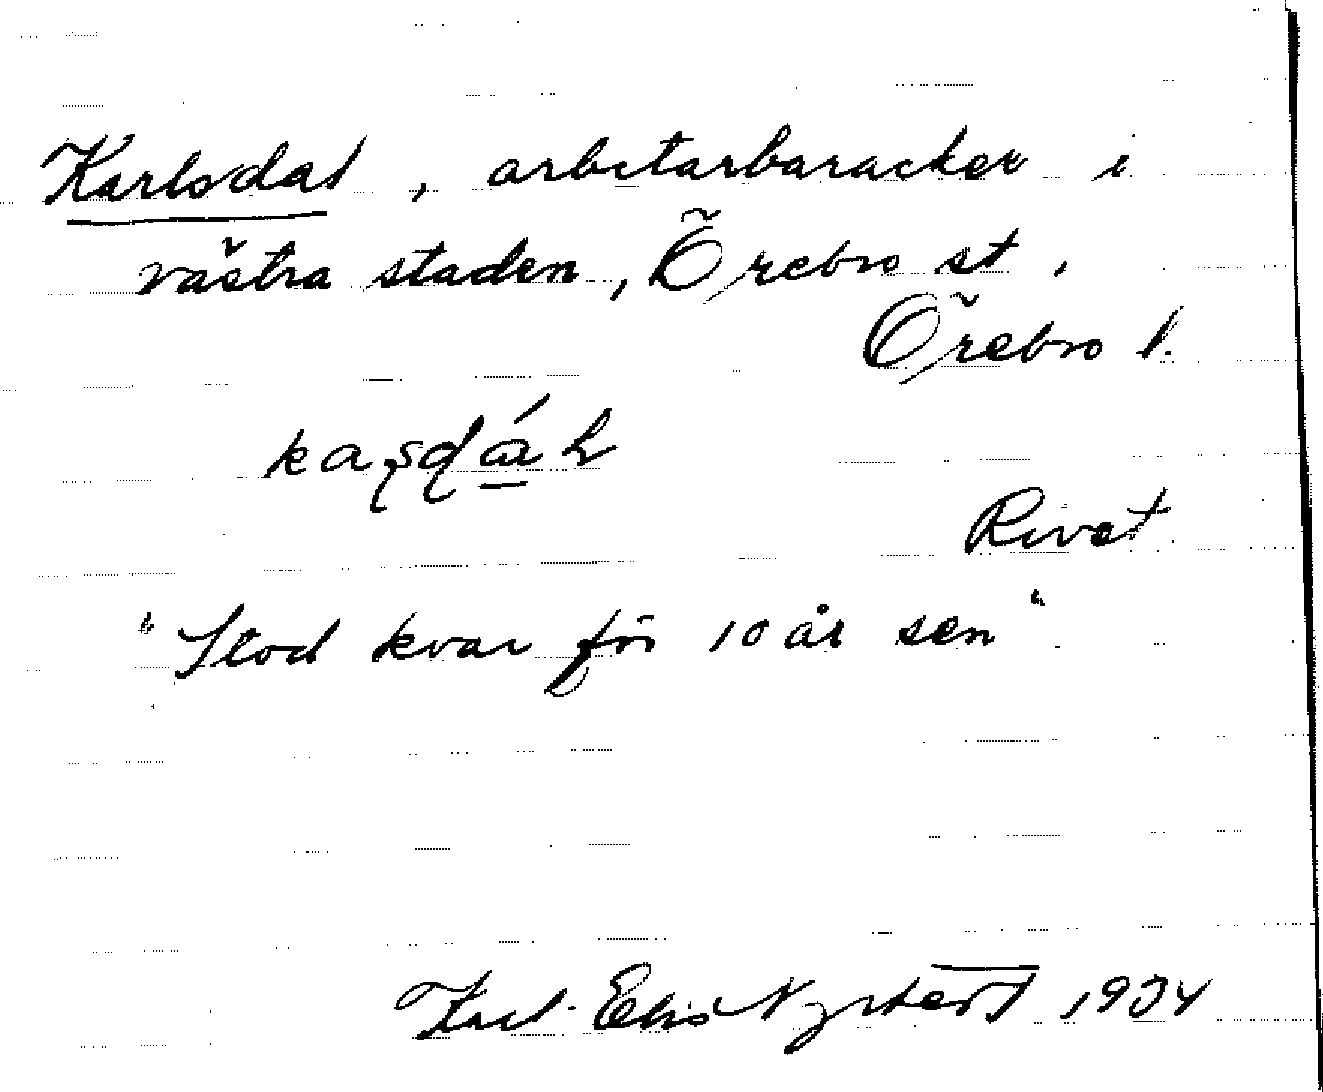 Karlsdal, arbetarbaracker i
västra staden, Örebro st,
Örebro l.
Rivet
"Stod kvar för 10 år sen"
Karl-Elis Nystedt 1934